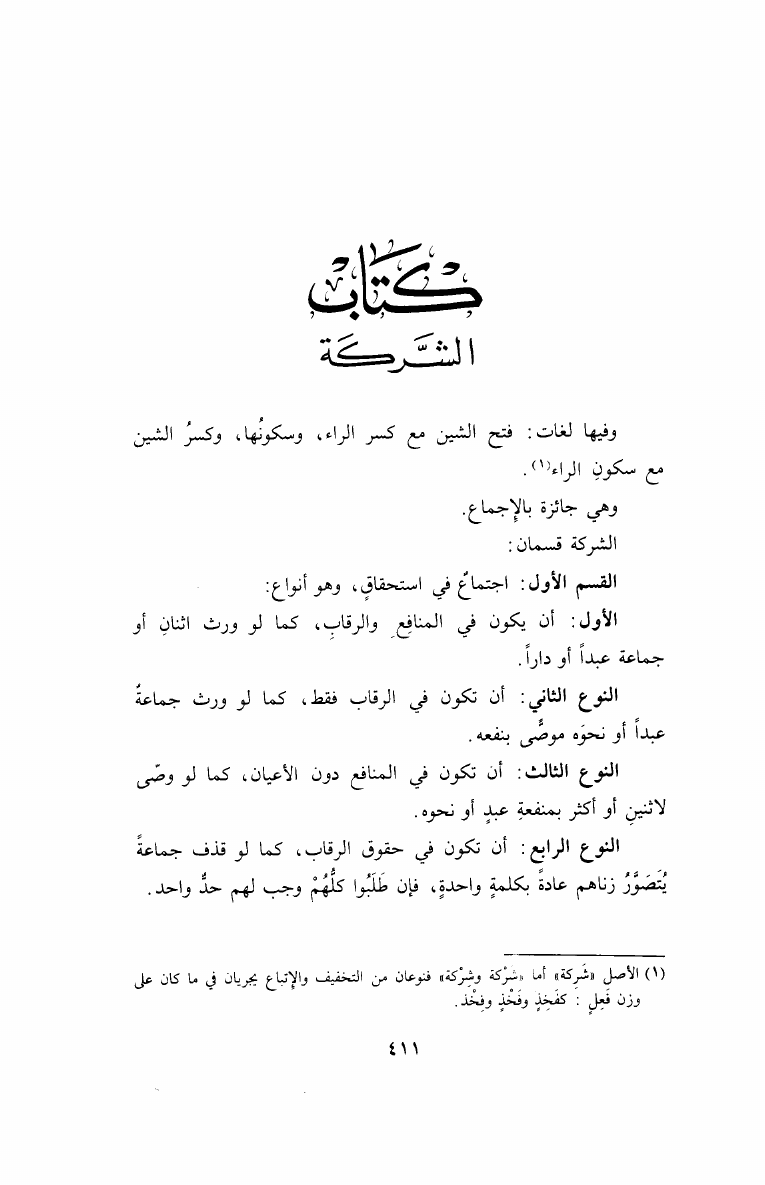 كتاب
الشَّركَة
وفيها لغات: فتح الشين مع كسر الراء، وسكونُها، وكسرُ الشين
مع سكونِ الراء(١).
وهي جائزة بالإجماع.
الشركة قسمان:
القسم الأول: اجتماعٌ في استحقاقٍ، وهو أنواع:
الأول: أن يكون في المنافِعِ والرقابِ، كما لو ورث اثنانِ أو
جماعة عبداً أو داراً.
النوع الثاني: أن تكون في الرقاب فقط، كما لو ورث جماعةٌ
عبداً أو نحوَه موصًّى بنفعه.
النوع الثالث: أن تكون في المنافع دون الأعيان، كما لو وصّى
لاثنينِ أو أكثر بمنفعةِ عبدٍ أو نحوه.
النوع الرابع: أن تكون في حقوق الرقاب، كما لو قذف جماعةً
يُتَصَوَّرُ زناهم عادةً بكلمةٍ واحدةٍ، فإن طَلَبُوا كلُّهُمْ وجب لهم حدٌّ واحد.
(١) الأصل «شَرِكة» أما «شَرْكة وشِرْكة» فنوعان من التخفيف والإتباع يجريان في ما كان على
وزن فَعِلٍ : كفَخِذٍ وفَخْذٍ وفِخْذ.
٤١١